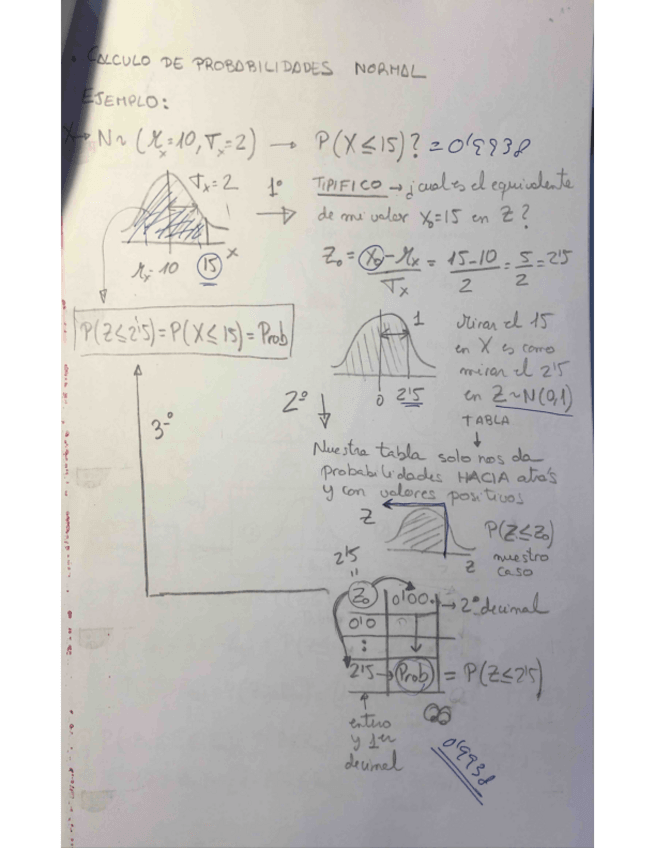 . CALCULO DE PROBABILIDADES NORMAL
EJEMPLO:
X→ N~ (μx=10, σx=2) → P(X≤15)? = 0'9938
σx=2
μx=10 15 x
1º TIPIFICO → ¿cual es el equivalente
de mi valor x₀=15 en Z?
Z₀ = X₀-μx / σx = 15-10 / 2 = 5 / 2 = 2'5
P(Z≤2'5)=P(X≤15)=Prob
1
0 2'5
Mirar el 15
en X es como
mirar el 2'5
en Z~N(0,1)
TABLA
2º
3º
Nuestra tabla solo nos da
probabilidades HACIA atrás
y con valores positivos
Z
Z
P(Z≤Z₀)
nuestro
caso
2'5
"
Z₀ 0'00. → 2º decimal
0'0
:
2'5 → Prob = P(Z≤2'5)
entero
y 1er
decimal
0'9938